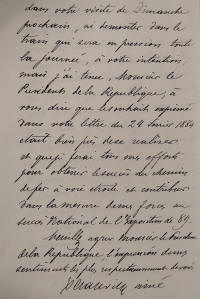 dans votre visite de Dimanche
prochain, j'ai demonter dans le
train qui sera en pression toute
la journée, à votre intention,
mais j'ai tenu, Monsieur le
Président de la République, à
vous dire que le souhait exprimé
dans votre lettre du 24 1884
etait bien près d'etre realiser
et que je ferai tous mes efforts
pour obtenir le succès du chemin
de fer à voie étroite et contribuer
dans la mesure de mes forces au
succès National de l'Exposition de 89.
Veuillez agréer Monsieur le Président
de la République l'expression de mes
sentiments les plus respectueusement devoués
ainé